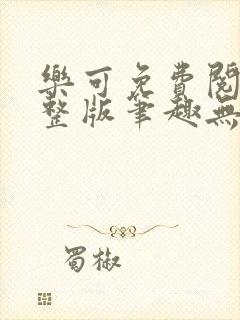 樂可免費閱
整版筆趣無
蜀椒